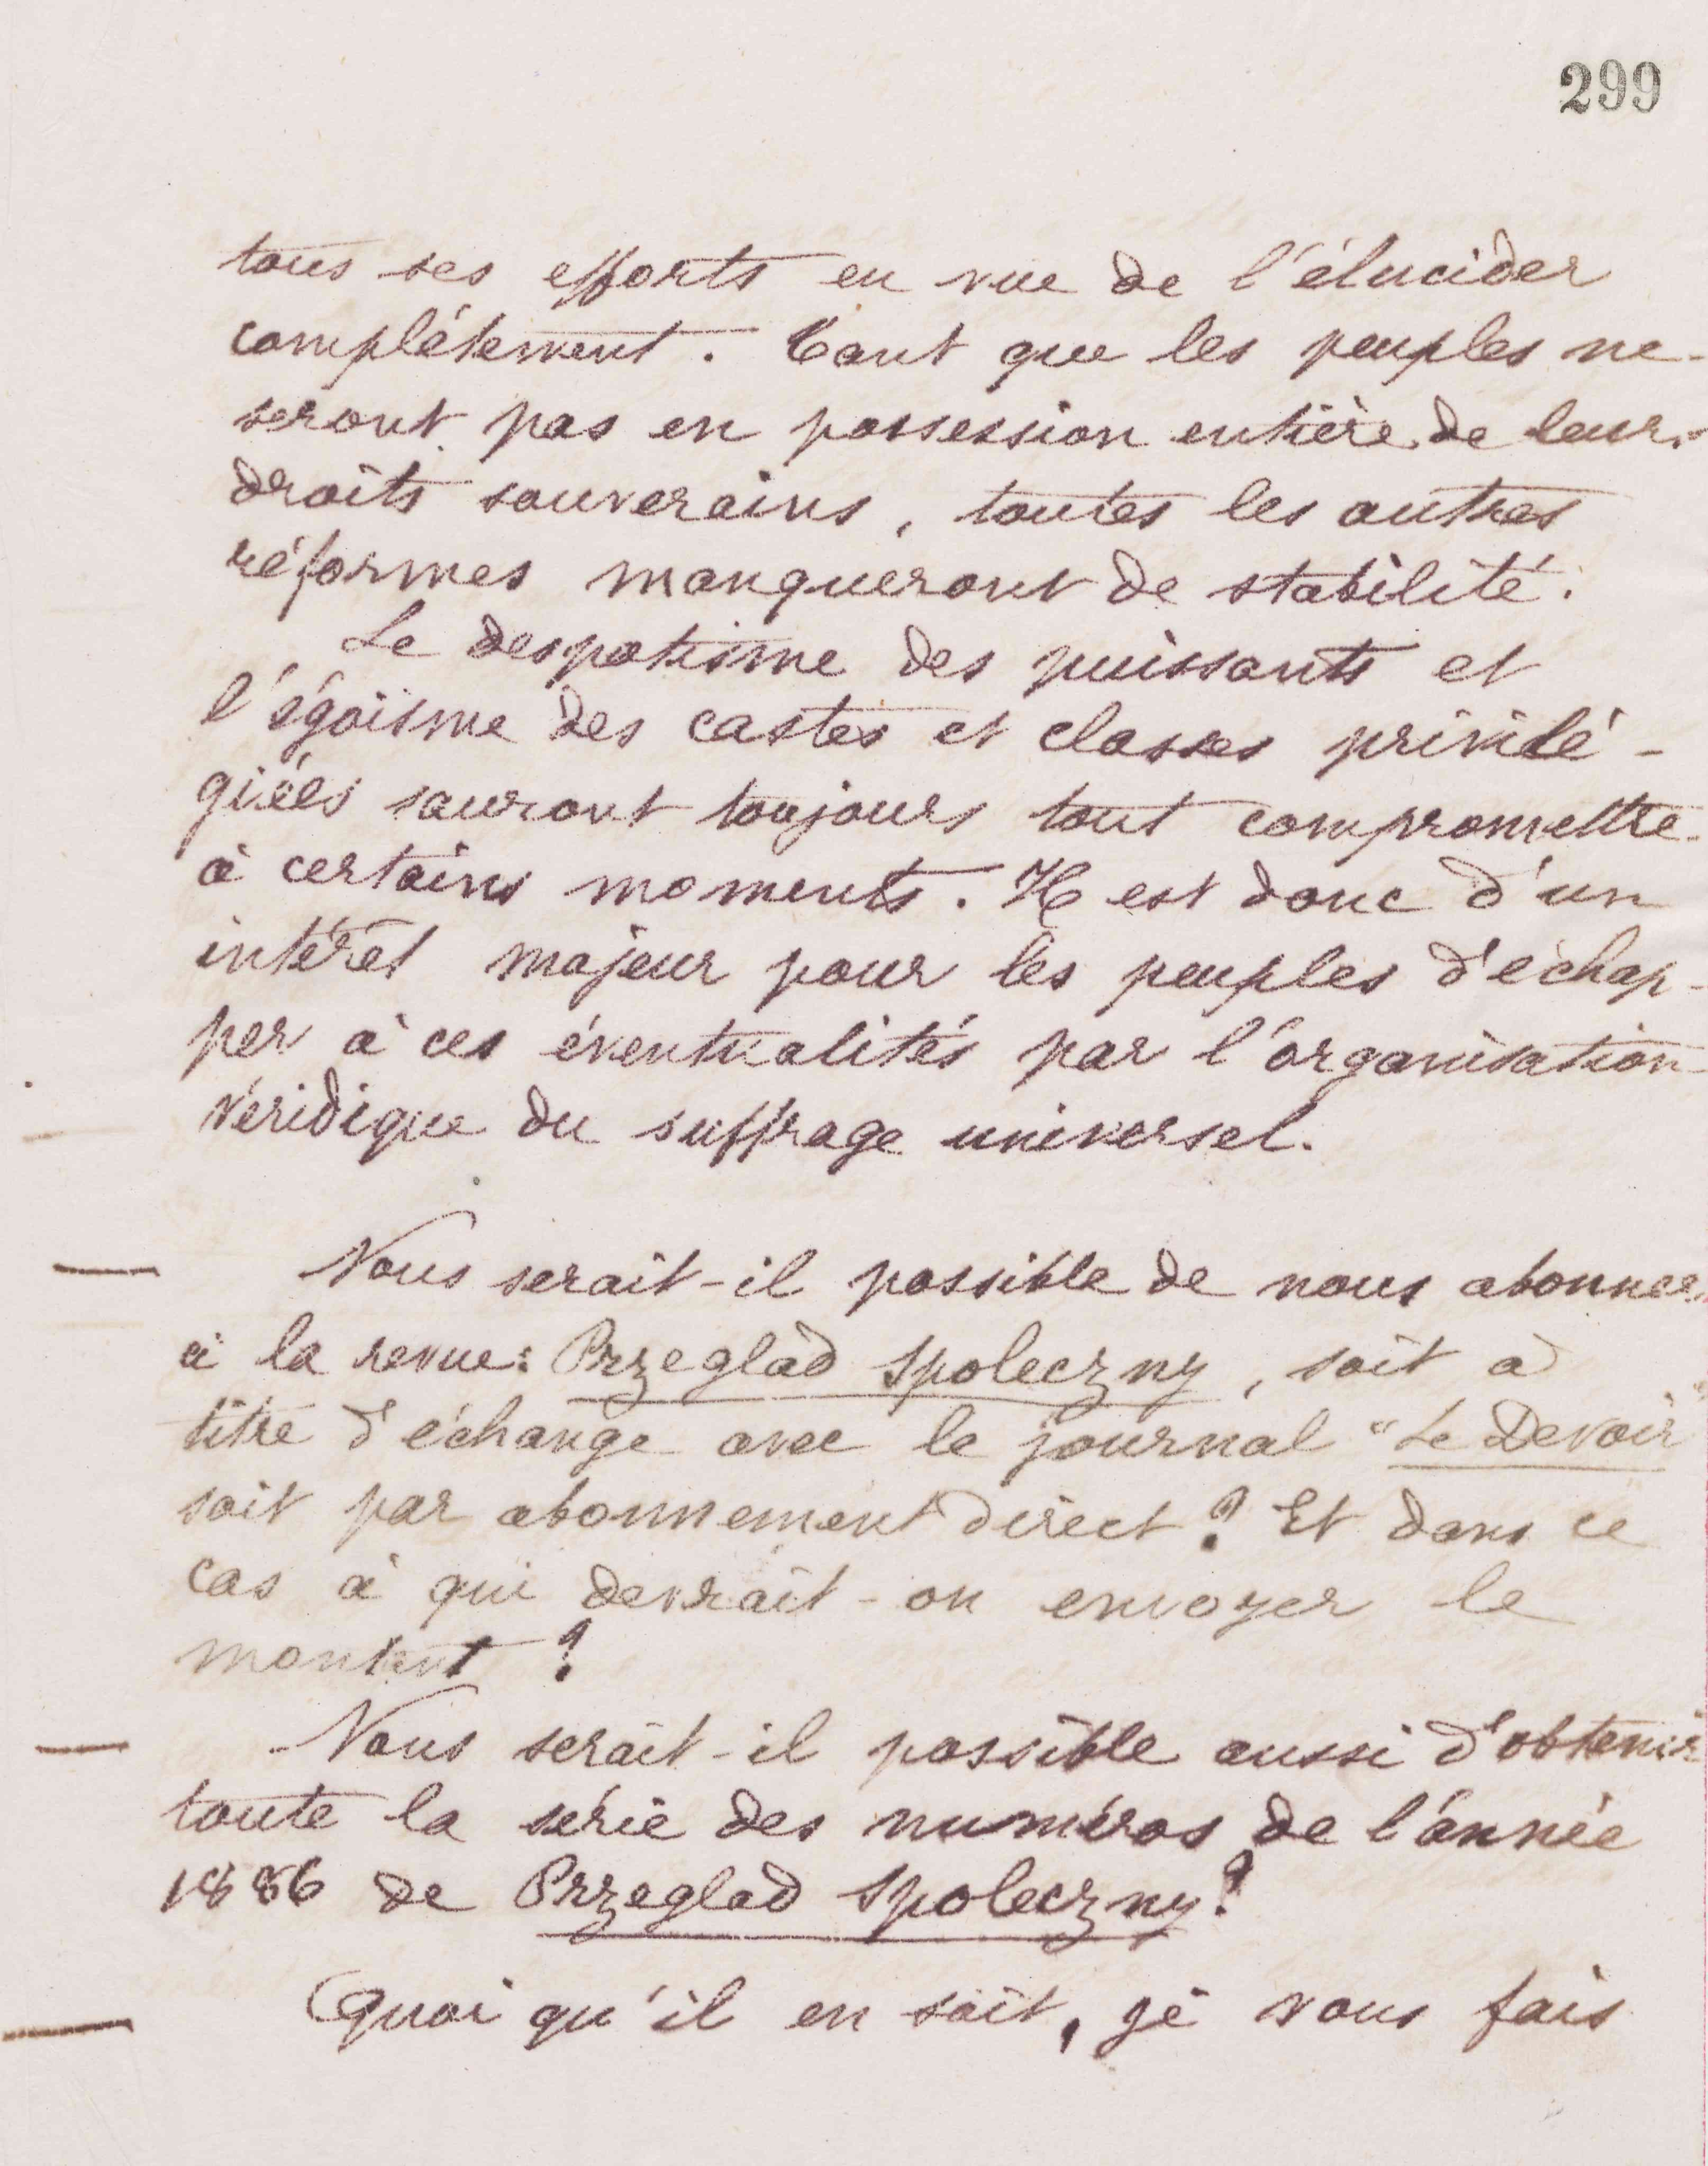 299
tous ses efforts en vue de l'élucider
complétement. Tant que les peuples ne
seront pas en possession entière de leurs
droits souverains, toutes les autres
réformes manqueront de stabilité.
Le despotisme des puissants et
l'égoïsme des castes et classes privilé-
giées sauront toujours tout compromettre
à certains moments. Il est donc d'un
intérêt majeur pour les peuples d'échap-
per à ces éventualités par l'organisation
véridique du suffrage universel.
Nous serait-il possible de nous abonner
à la revue: Przeglad Spoleczny, soit à
titre d'échange avec le journal "Le Devoir"
soit par abonnement direct? Et dans ce
cas à qui devrait-on envoyer le
montant?
Nous serait-il possible aussi d'obtenir
toute la série des numéros de l'année
1886 de Przeglad Spoleczny?
Quoi qu'il en soit, je vous fais